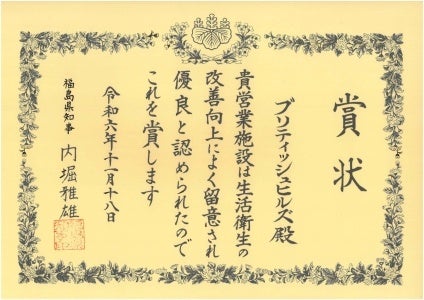 賞状
ブリティッシュヒルズ殿
貴営業施設は生活衛生の
改善向上によく留意され
優良と認められたので
これを賞します
令和六年十一月十八日
福島県知事 内堀雅雄